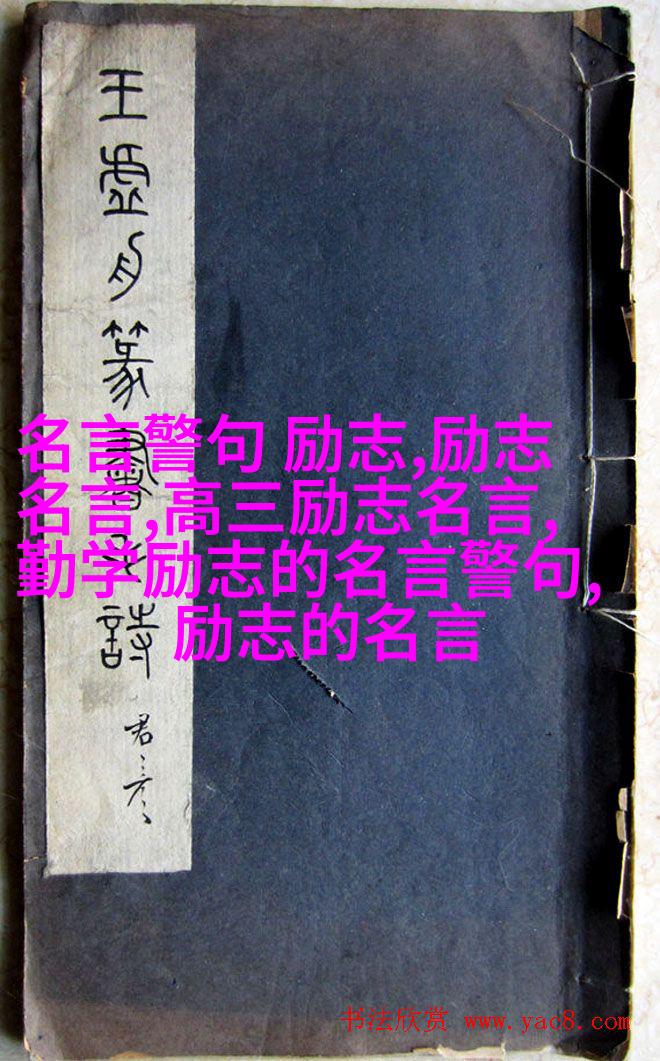 王虚舟篆書詩
名言警句 励志,励志
名言,高三励志名言,
勤学励志的名言警句,
励志的名言
书法欣赏 www.yac8.com